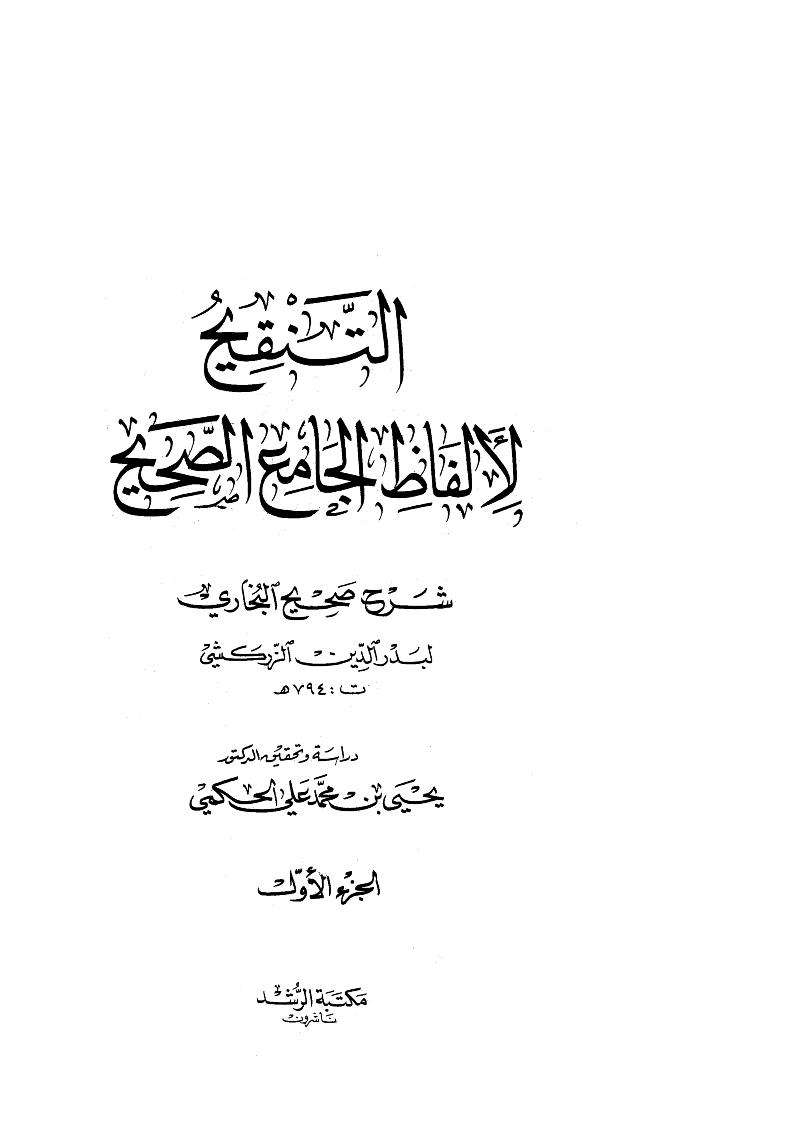 التَّنْقِيحُ
لِأَلفَاظِ الجَامِعِ الصَّحِيحِ
شَرْحُ صَحِيحِ البُخَارِي
لبَدْرِ الدِّينِ الزَّرْكَشِيّ
ت : ٧٩٤هـ
دراسَة وتحقيق الدكتور
يَحْيَى بْن مُحَمَّد عَلي الحَكَمِيّ
الجزء الأوّل
مَكتَبَة الرُّشْد
نَاشِرُون